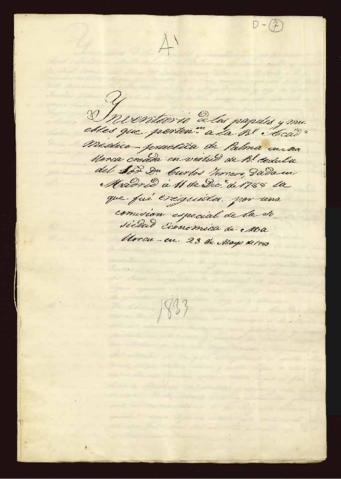 D-7
A1
Inventario de los papeles y mue
bles que perten.en a la Rl. Acad.a
Médico-practica de Palma en Ma
llorca creada en virtud de Rl. Cedula
del Sor. Dn. Carlos Tercero dada en
Madrid á 11 de Dic.e de 1788 la
que fué eregida por una
comision especial de la So
ciedad Economica de Ma
llorca en 23 de Mayo de
1833